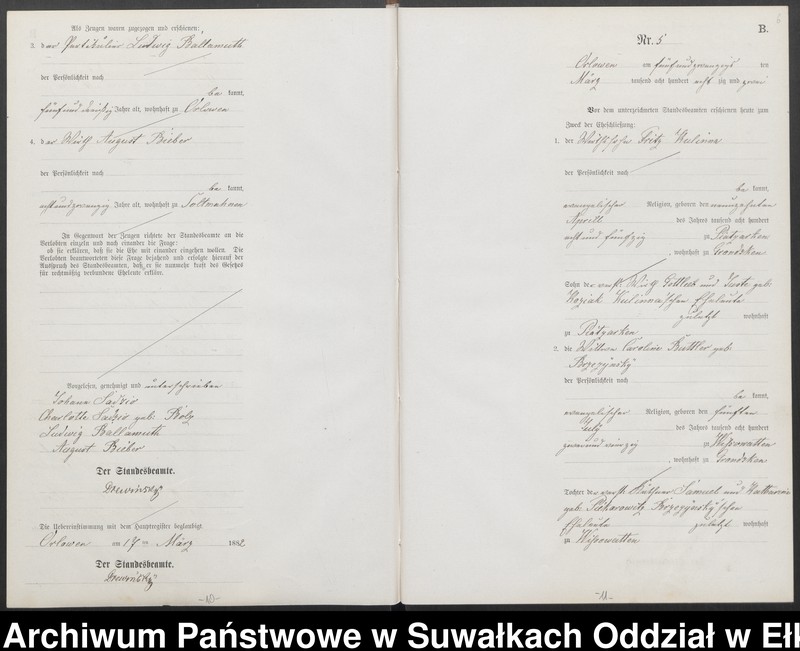 Als Zeugen waren zugezogen und erschienen:
3. der Partikulier Ludwig Ballamuth
der Persönlichkeit nach
be kannt,
fünfunddreißig Jahre alt, wohnhaft zu Orlowen
4. der Wirth August Bieber
der Persönlichkeit nach
be kannt,
achtundzwanzig Jahre alt, wohnhaft zu
In Gegenwart der Zeugen richtete der Standesbeamte an die
Verlobten einzeln und nach einander die Frage:
ob sie erklären, daß sie die Ehe mit einander eingehen wollen. Die
Verlobten beantworteten diese Frage bejahend und erfolgte hierauf der
Ausspruch des Standesbeamten, daß er sie nunmehr kraft des Gesetzes
für rechtmäßig verbundene Eheleute erkläre.
Vorgelesen, genehmigt und unterschrieben
Johann
Charlotte geb.
Ludwig Ballamuth
August Bieber
Der Standesbeamte.
Die Uebereinstimmung mit dem Hauptregister beglaubigt
Orlowen am 17 ten März 1882
Der Standesbeamte.
-10-
B.
Nr. 5
Orlowen am fünfundzwanzigs ten
März tausend acht hundert acht zig und zwei
Vor dem unterzeichneten Standesbeamten erschienen heute zum
Zweck der Eheschließung:
1. der Wirthssohn Fritz Kulinna
der Persönlichkeit nach
be kannt,
evangelischer Religion, geboren den neunzehnten
April des Jahres tausend acht hundert
acht und fünfzig zu
, wohnhaft zu Grondzken
Sohn des verst. Wirth Gottlieb und geb.
Koziak Kulinna'schen Eheleute
zuletzt wohnhaft
zu
2. die Wittwe Caroline geb.
Brzezynsky
der Persönlichkeit nach
be kannt,
evangelischer Religion, geboren den fünften
July des Jahres tausend acht hundert
zweiundvierzig zu Wissowatten
, wohnhaft zu Grondzken
Tochter der verst. Samuel und Katharina
geb. Brzezynsky'schen
Eheleute zuletzt wohnhaft
zu Wissowatten
-11-
Archiwum Państwowe w Suwałkach Oddział w Ełk